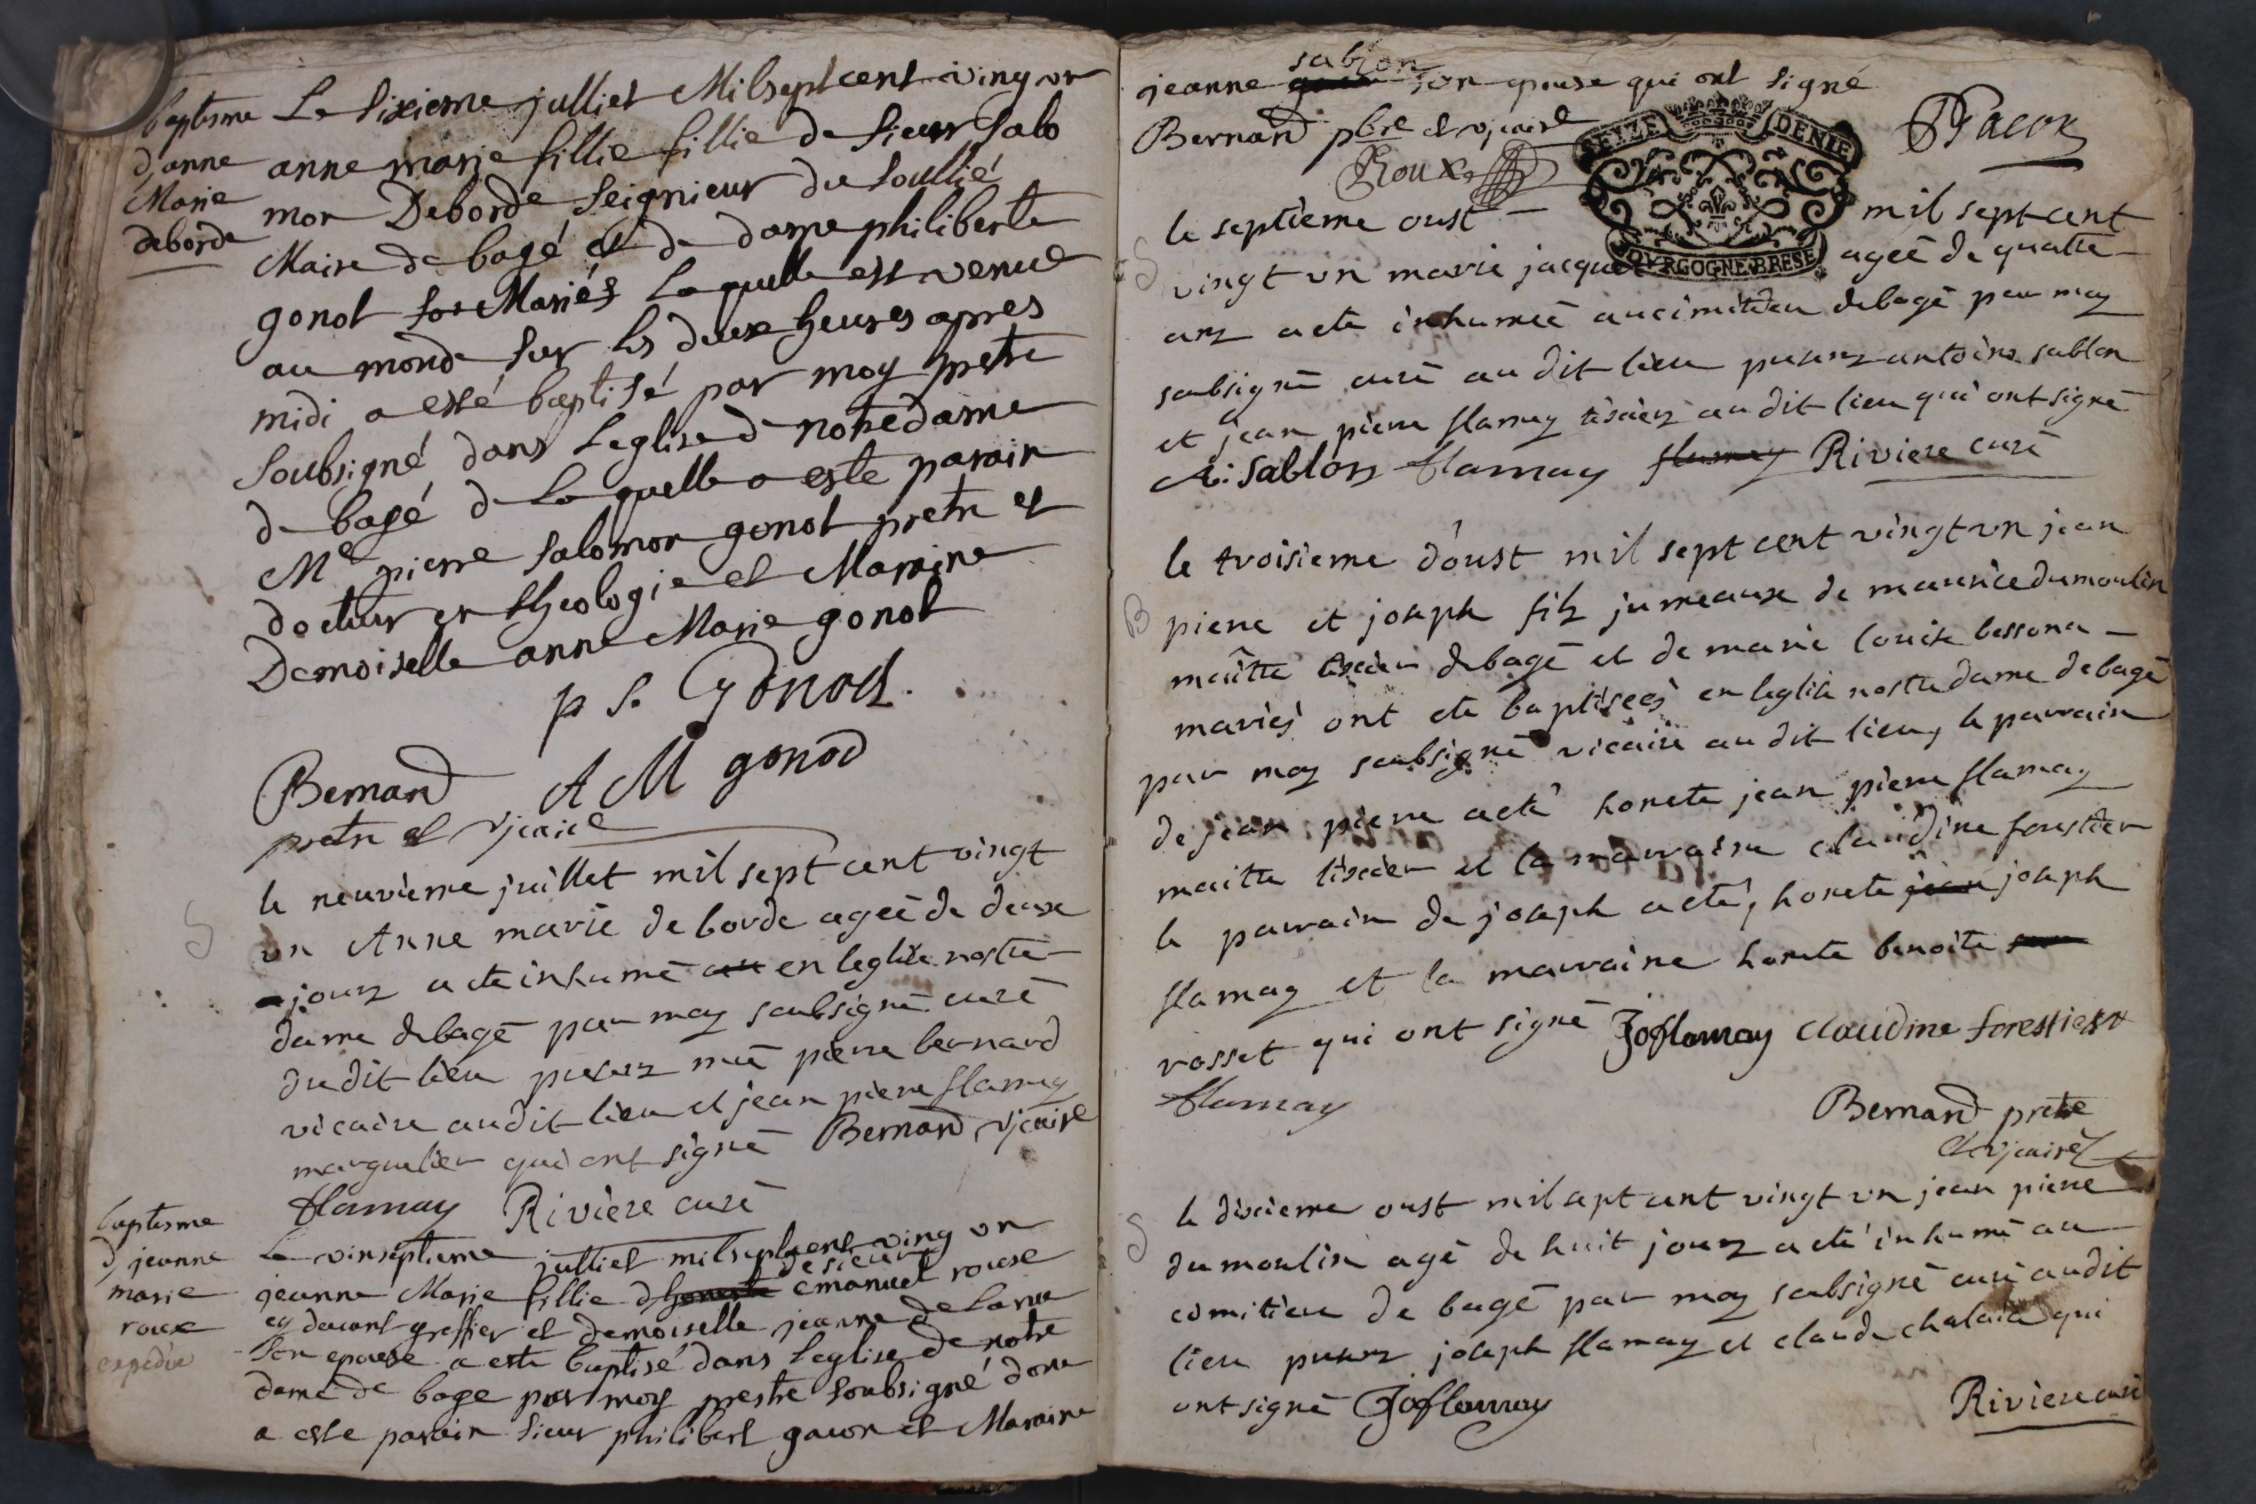 baptesme
d'anne
Marie
deborde
Le Sixiesme julliet Mil sept cent ving vn
anne marie fillie fillie de Sieur Salo
mon Deborde Seignieur du Soullié
Maire de bagé et de dame philiberte
gonot Mariés laquelle est venue
au monde sur les deux heures apres
midi a esté baptisé par moy pretre
Soubsigné dans l'eglise de notre dame
de bagé de laquelle a este parain
Me pierre Salomon gonot pretre et
docteur en theologie et Maraine
Demoiselle anne Marie gonot
p S. Gonod
A M gonod
Bernard
pretre et vjcaire
S
le neuvieme juillet mil sept cent vingt
un Anne marie deborde ageé de deux
jours a eté inhumé en leglise nostre
dame de bagé par moy soubsigné curé
dudit lieu presens mre piere bernard
vicaire audit lieu et jean piere flamay
marguelier qui ont signé Bernard vjcaire
flamay Riviere curé
baptesme
d jeanne
marie
roux
expedié
Le vinseptieme julliet mil sept cent ving vn
de sieur
jeanne Marie fillie d honeste emanuel roux
cy davant greffier et demoiselle jeanne de
Son epouse a este baptisé dans l'eglise de notre
dame de bage par moy prestre soubsigné dont
a este parain Sieur philibert gacon et Maraine
sablon
jeanne son epouse qui ont signé
Bernard pbre et vjcaire
Roux
PGacon
SEYZE DENIE
BOVRGOGNE BRESE
S
le septieme oust mil sept cent
vingt un marie jacquet ageé de quatre
ans a eté inhumeé au cimitieu de bagé par moy
soubsigné curé au dit lieu presens antoine sablon
et jean piere flamay tisciers au dit lieu qui ont signé
A: Sablon flamay flamay Riviere curé
B
le troisieme d'oust mil sept cent vingt vn jean
piere et joseph fils jumeaux de maurice dumoulin
maître tiscier de bagé et de marie louise bessona
mariés ont eté baptiseés en leglise nostre dame de bagé
par moy soubsigné vicaire au dit lieu, le parrain
de jean piere a eté honete jean piere flamay
maitre tiscier et la marraine claudine forestier
le parrain de joseph a eté, honete jean joseph
flamay et la marraine honete benoite
rosset qui ont signé Joflamay claudine forestier
flamay
Bernard pretre
et vjcaire
S
le dixieme oust mil sept cent vingt vn jean piere
dumoulin agé de huit jours a eté inhumé au
cimitieu de bagé par moy soubsigné curé audit
lieu presens joseph flamay et claude chalaia qui
ont signé Joflamay
Riviere curé